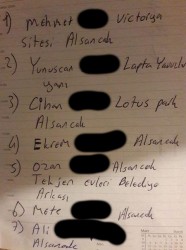 1) Mehmet Victorya
Sitesi Alsancak
2) Yunuscan Lapta Yavuzlar
yanı
3) Cihan Lotus park
Alsancak
4) Ekrem Alsancak
5) Ozan Alsancak
Tekjen evleri Belediye
Arkası
6) Mete Alsancak
7) Ali
Alsancak